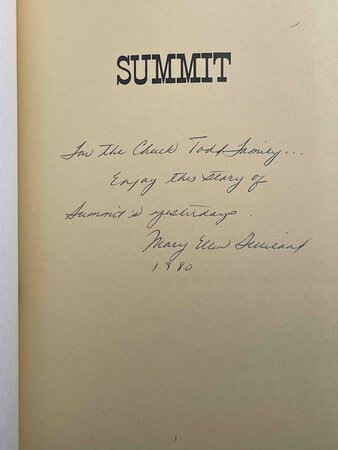 SUMMIT
For the Chuck Todd Family...
Enjoy this story of
Summit's yesterdays.
Mary Ellen Gilliland
1980
1